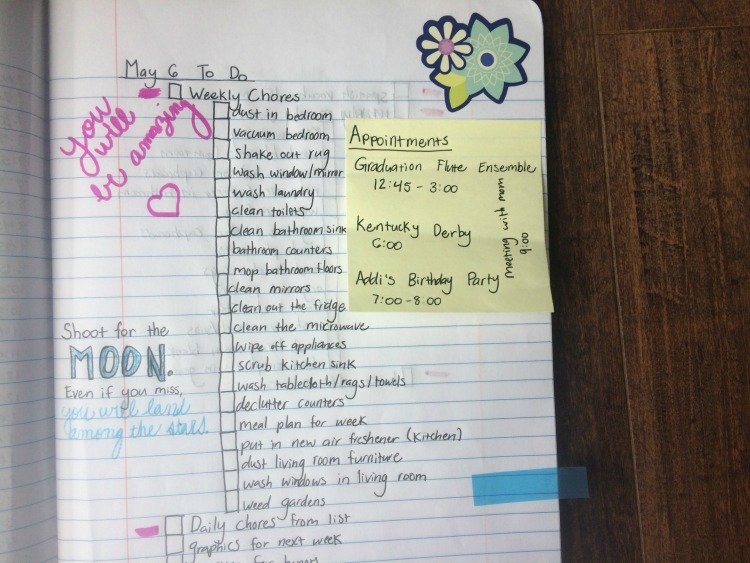 May 6 To Do
Weekly Chores
dust in bedroom
vacuum bedroom
shake out rug
wash window/mirror
wash laundry
clean toilets
clean bathroom sink
bathroom counters
mop bathroom floors
clean mirrors
clean out the fridge
clean the microwave
wipe off appliances
scrub kitchen sink
wash tablecloth/rags/towels
declutter counters
meal plan for week
put in new air freshener (kitchen)
dust living room furniture
wash windows in living room
weed gardens
Daily chores from list
graphics for next week
you
will
be amazing
Shoot for the
MOON.
Even if you miss,
you will land
among the stars.
Appointments
Graduation Flute Ensemble
12:45 - 3:00
Kentucky Derby
6:00
Addi's Birthday Party
7:00-8:00
Meeting with mom
9:00